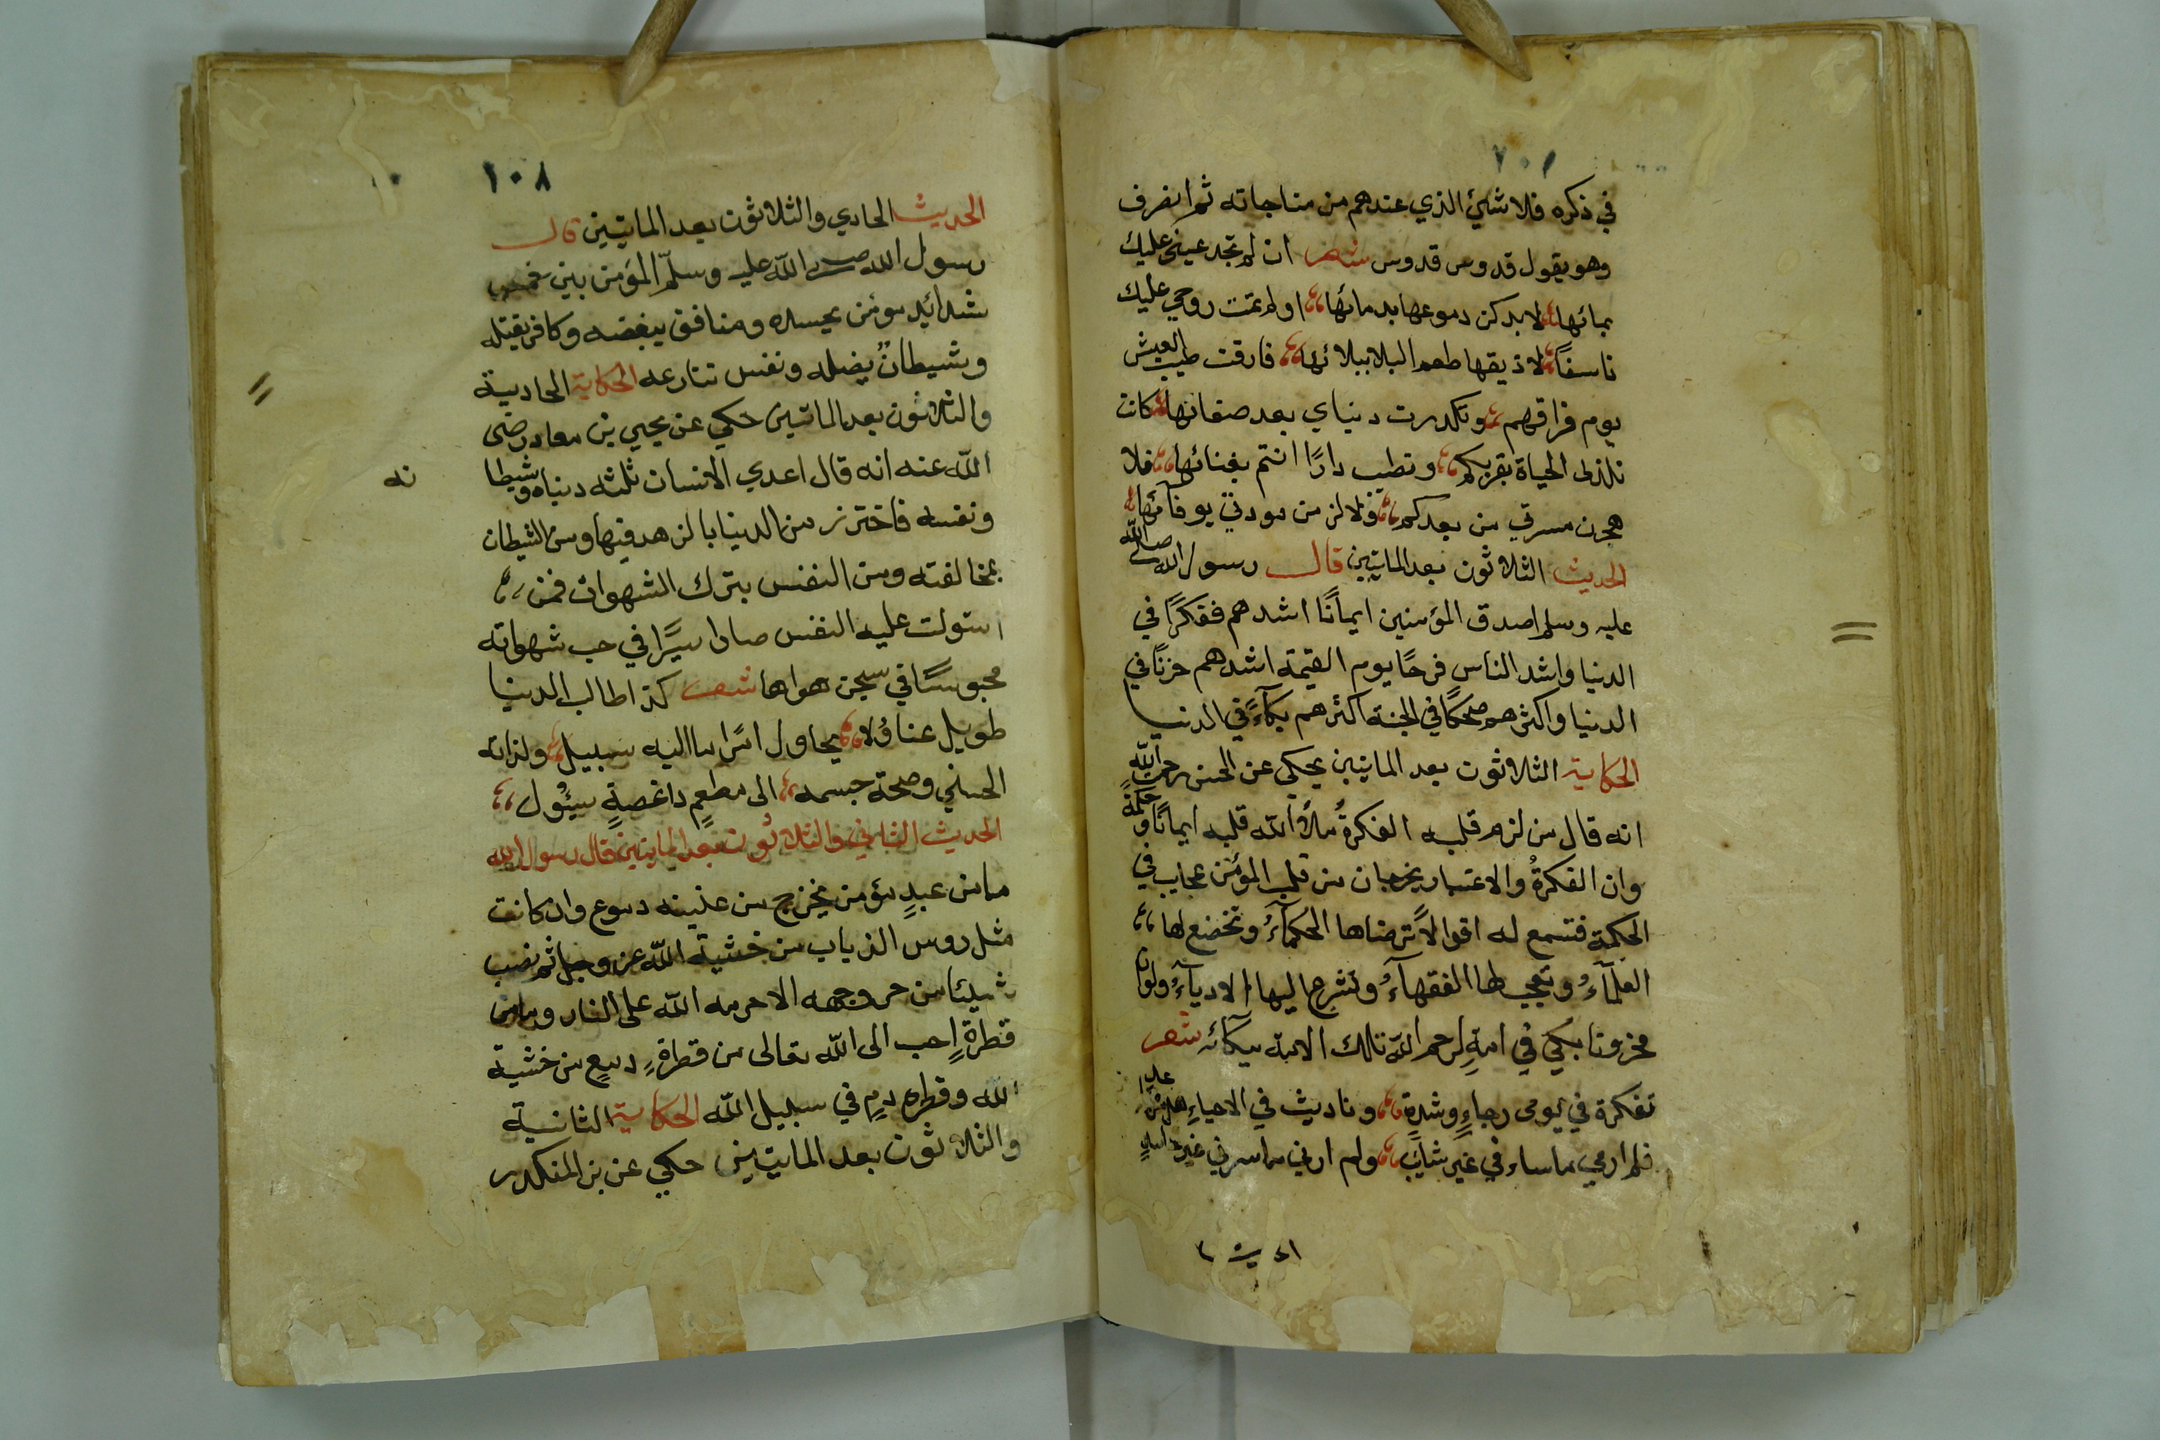 ١٠٧
في ذكره فلا شيئ الذي عندهم من مناجاته ثم انصرف
وهو يقول قدوس قدوس شعر ان لم تجد عيني عليك
بمائها لابدكن دموعها بدمائها او لم تمت روحي عليك
تاسفاً لاذيقها طعم البلا ببلائها فارقت طيب العيش
يوم فراقهم وتكدرت دنياي بعد صفائها كانت
تلذلى الحياة بقربكم وتطب دارًا انتم بفنائها فلا
هجرن مسرتي من بعدكم ولا لزمن مودتي بوفائها
الحديث الثلاثون بعد الماتيين قال رسول الله صلى الله
عليه وسلم اصدق المؤمنين ايمانًا اشدهم فقكرًا في
الدنيا واشد الناس فرحًا يوم القيمة اشدهم حزنًا في
الدنيا واكثرهم ضحكًا في الجنة اكثرهم بكآءً في الدنيا
الحكاية الثلاثون بعد الماتيين يحكى عن الحسن رحمت الله
انه قال من لزم قلبه الفكرةُ ملأ الله قلبه ايمانًا وحكمةً
وان الفكرةُ والاعتبار يخرجان من قلب المؤمن عجاب في
الحكمة فتسمع له اقوالاً ترضاها الحكمآءُ وتخضع لها
العلمآءُ وتعجب لها الفقهآءُ وتشرع اليها الادبآءُ ولوان
محزونا بكي في امةٍ لرحم الله تلك الامة ببكائه شعر
تفكرة في يومى رجاءٍ وشدةٍ وناديت في الاحياءِ هل من
فلم ارمي ماساء في غير شامتٍ ولم ارني ما سرني غير
الحديث
١٠٨
الحديث الحادي والثلاثون بعد الماتيين قال
رسول الله صلى الله عليه وسلم المؤمن بين خمس
شدائد مومن يحسده ومنافق يبغضه وكافر يقتله
وشيطانٌ يضله ونفس تنازعه الحكاية الحادية
والثلاثون بعد الماتيين حكي عن يحيي بن معاد رضى
الله عنه انه قال اعدي الانسان ثلثه دنياه وشيطا
نه
ونفسه فاخترز من الدنيا بالزهد فيها ومن الشيطان
بمخالفته ومن النفس بترك الشهوات فمن
استولت عليه النفس صار اسيرًا في حب شهواته
محبوسًا في سجن هواها شعر كذا طالب الدنيا
طويل عناؤلا يحاول امرًا ما اليه سبيل ولذاته
الحسني وصحة جسمه الى مطعمٍ داغصةٍ سيئول
الحديث الثاني والثلاثون بعد الماتيين قال رسول الله
مامن عبدٍ مؤمن يخرج من عينيه دموع وان كانت
مثل روس الذباب من خشية الله عز وجل ثم نصيب
شيئا من حر وجهه الا حرمه الله على النار ومامن
قطرةٍ احب الى الله تعالى من قطرةِ دمعٍ من خشية
الله وقطره دمٍ في سبيل الله الحكاية الثانية
والثلاثون بعد الماتيين حكي عن بن المنكدر